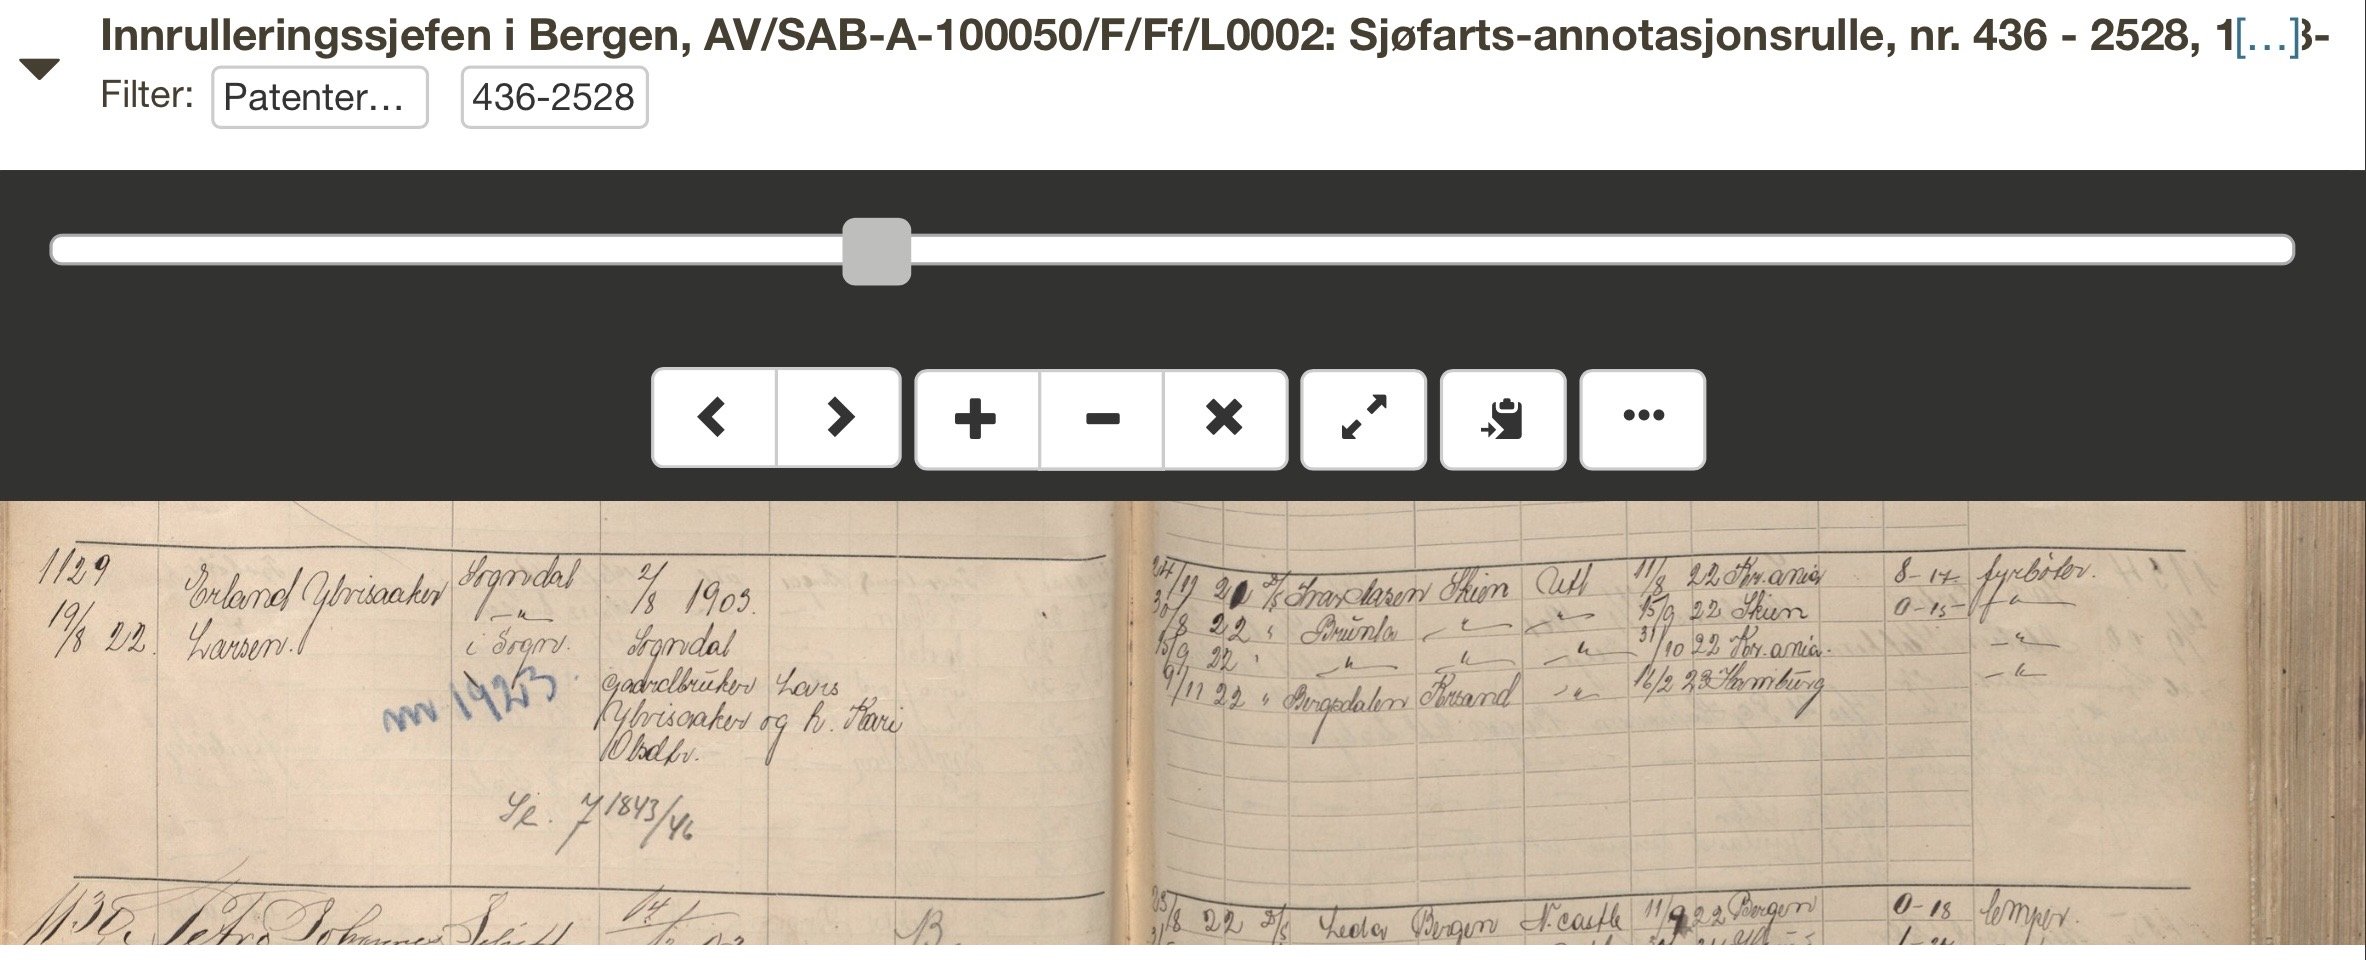 Innrulleringssjefen i Bergen, AV/SAB-A-100050/F/Ff/L0002: Sjøfarts-annotasjonsrulle, nr. 436 - 2528, 1[…]3-
Filter: Patenter… 436-2528
1129
19/8 22.
Erland Ylvisaaker
Larsen.
Sogndal
—„—
i Sogn.
2/8 1903.
Sogndal
gaardbruker Lars
Ylvisaaker og h. Kari
Olsdtr.
1923
7 1843/46
24/11 21 D/S Skien Utl 11/8 22 Kr.ania 8-17 fyrböter.
30/8 22 „ Brunla —„— —„— 15/9 22 Skien 0-15 —„—
15/9 22 „ —„— —„— —„— 31/10 22 Kr.ania. —„—
9/11 22 „ Bergsdalen Krsand —„— 16/2 23 Hamburg —„—
1130. Johannes
14/
B.
23/8 22 D/S Leda Bergen N.castle 11/9 22 Bergen 0-18 lemper.